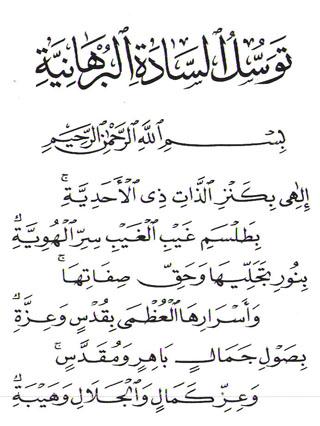 تَوَسُّلُ ٱلسَّادَةِ ٱلْبُرْهَانِيَّةِ
بِسْمِ ٱللَّهِ ٱلرَّحْمَٰنِ ٱلرَّحِيمِ
إِلٰهِى بِكَنْزِ ٱلذَّاتِ ذِى ٱلْأَحَدِيَّةِ
بِطَلْسَمِ غَيْبِ ٱلْغَيْبِ سِرِّ ٱلْهُوِيَّةِ
بِنُورِ تَجَلِّيهَا وَحَقِّ صِفَاتِهَا
وَأَسْرَارِهَا ٱلْعُظْمَى بِقُدْسٍ وَعِزَّةٍ
بِصَوْلِ جَمَالٍ بَاهِرٍ وَمُقَدَّسٍ
وَعِزِّ كَمَالٍ وَٱلْجَلَالِ وَهَيْبَةٍ